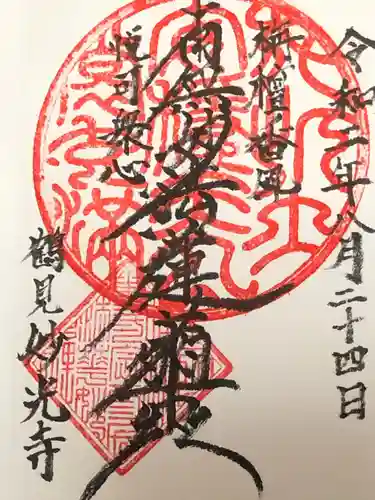 令和二年八月二十四日
栴檀香風
南無妙法蓮華経
悦可衆心
鶴見妙光寺